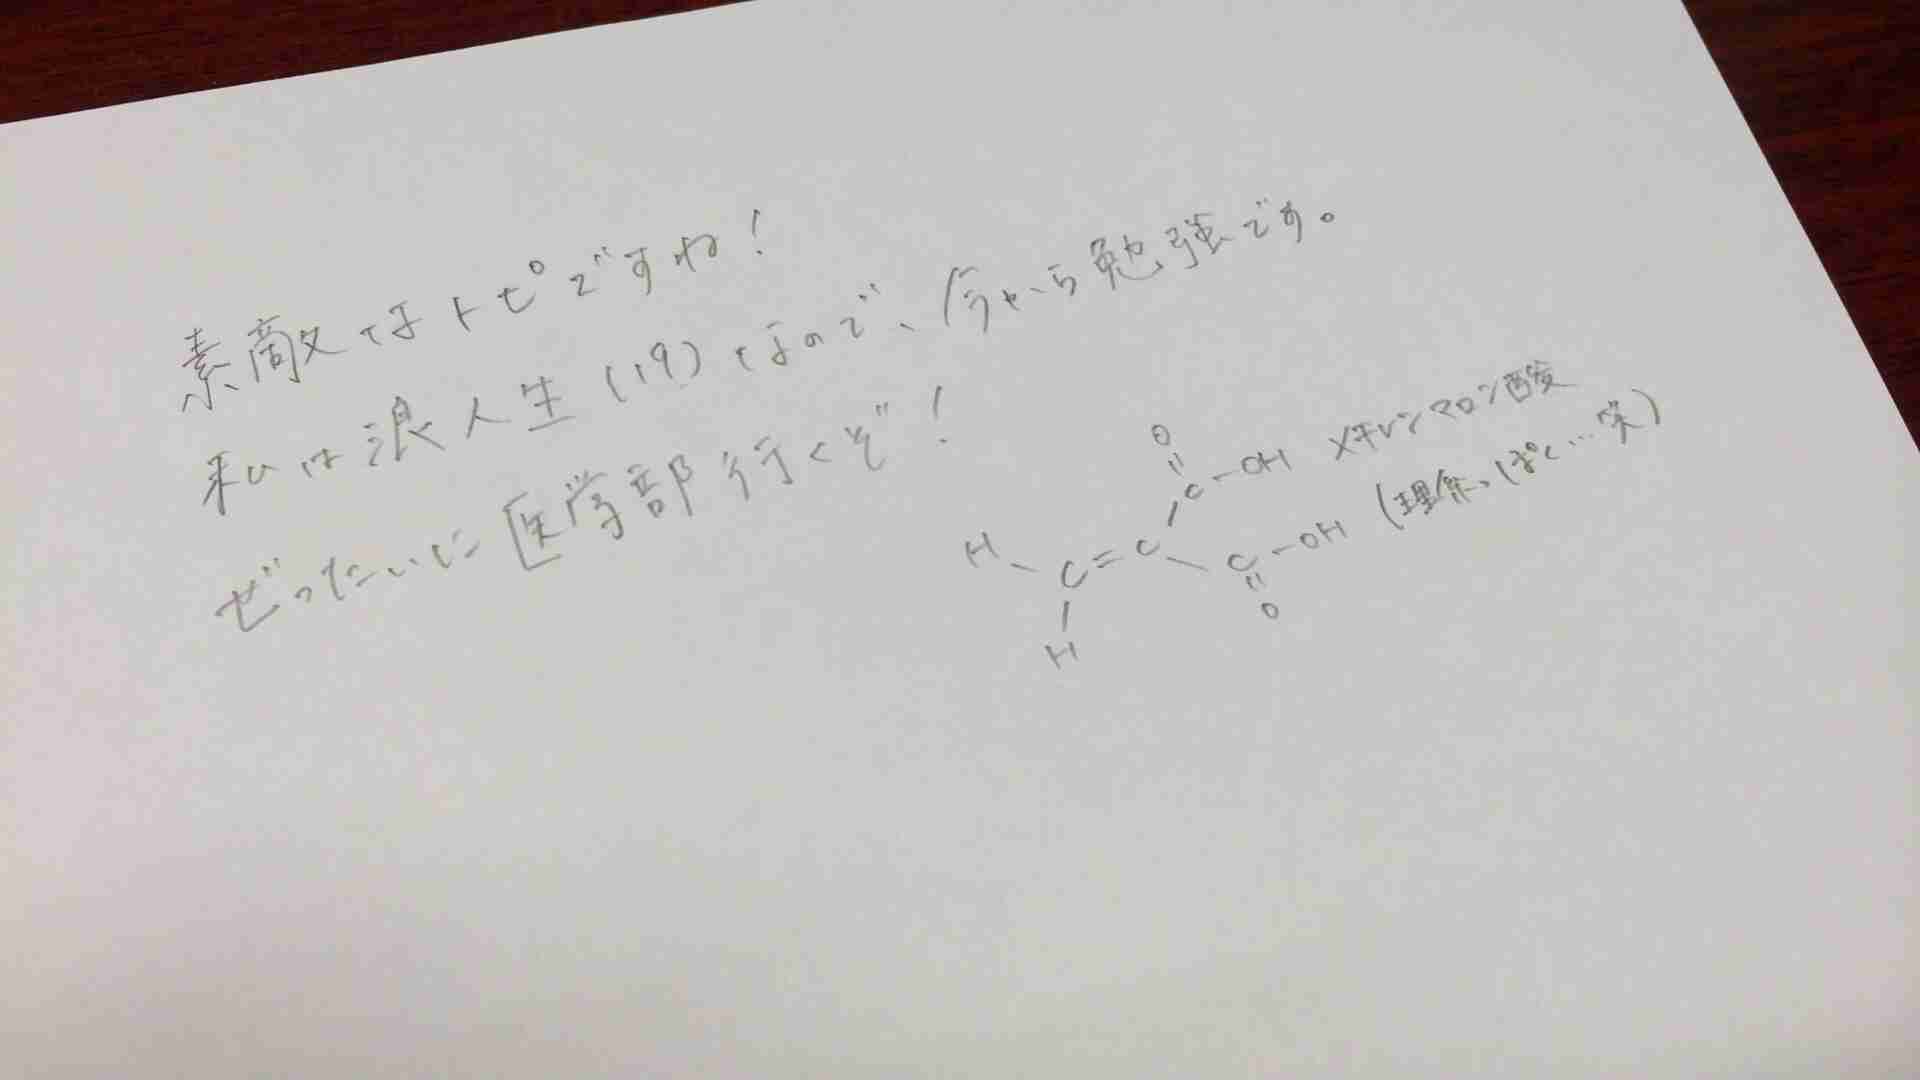 素敵なトピですね!
私は浪人生(19)なので、今から勉強です。
ぜったいに医学部行くぞ!
O
C-OH メチレンマロン酸
H C=C C-OH (理系っぽく…笑)
H O